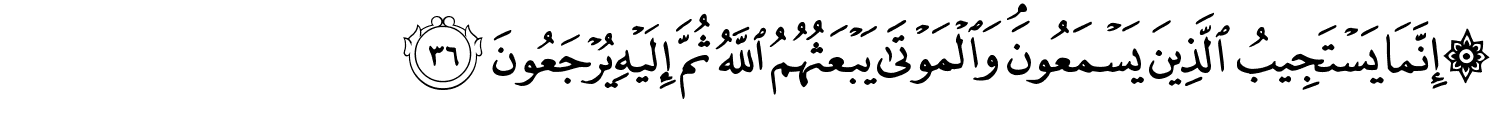 ۞ إِنَّمَا يَسْتَجِيبُ ٱلَّذِينَ يَسْمَعُونَ ۘ وَٱلْمَوْتَىٰ يَبْعَثُهُمُ ٱللَّهُ ثُمَّ إِلَيْهِ يُرْجَعُونَ ٣٦